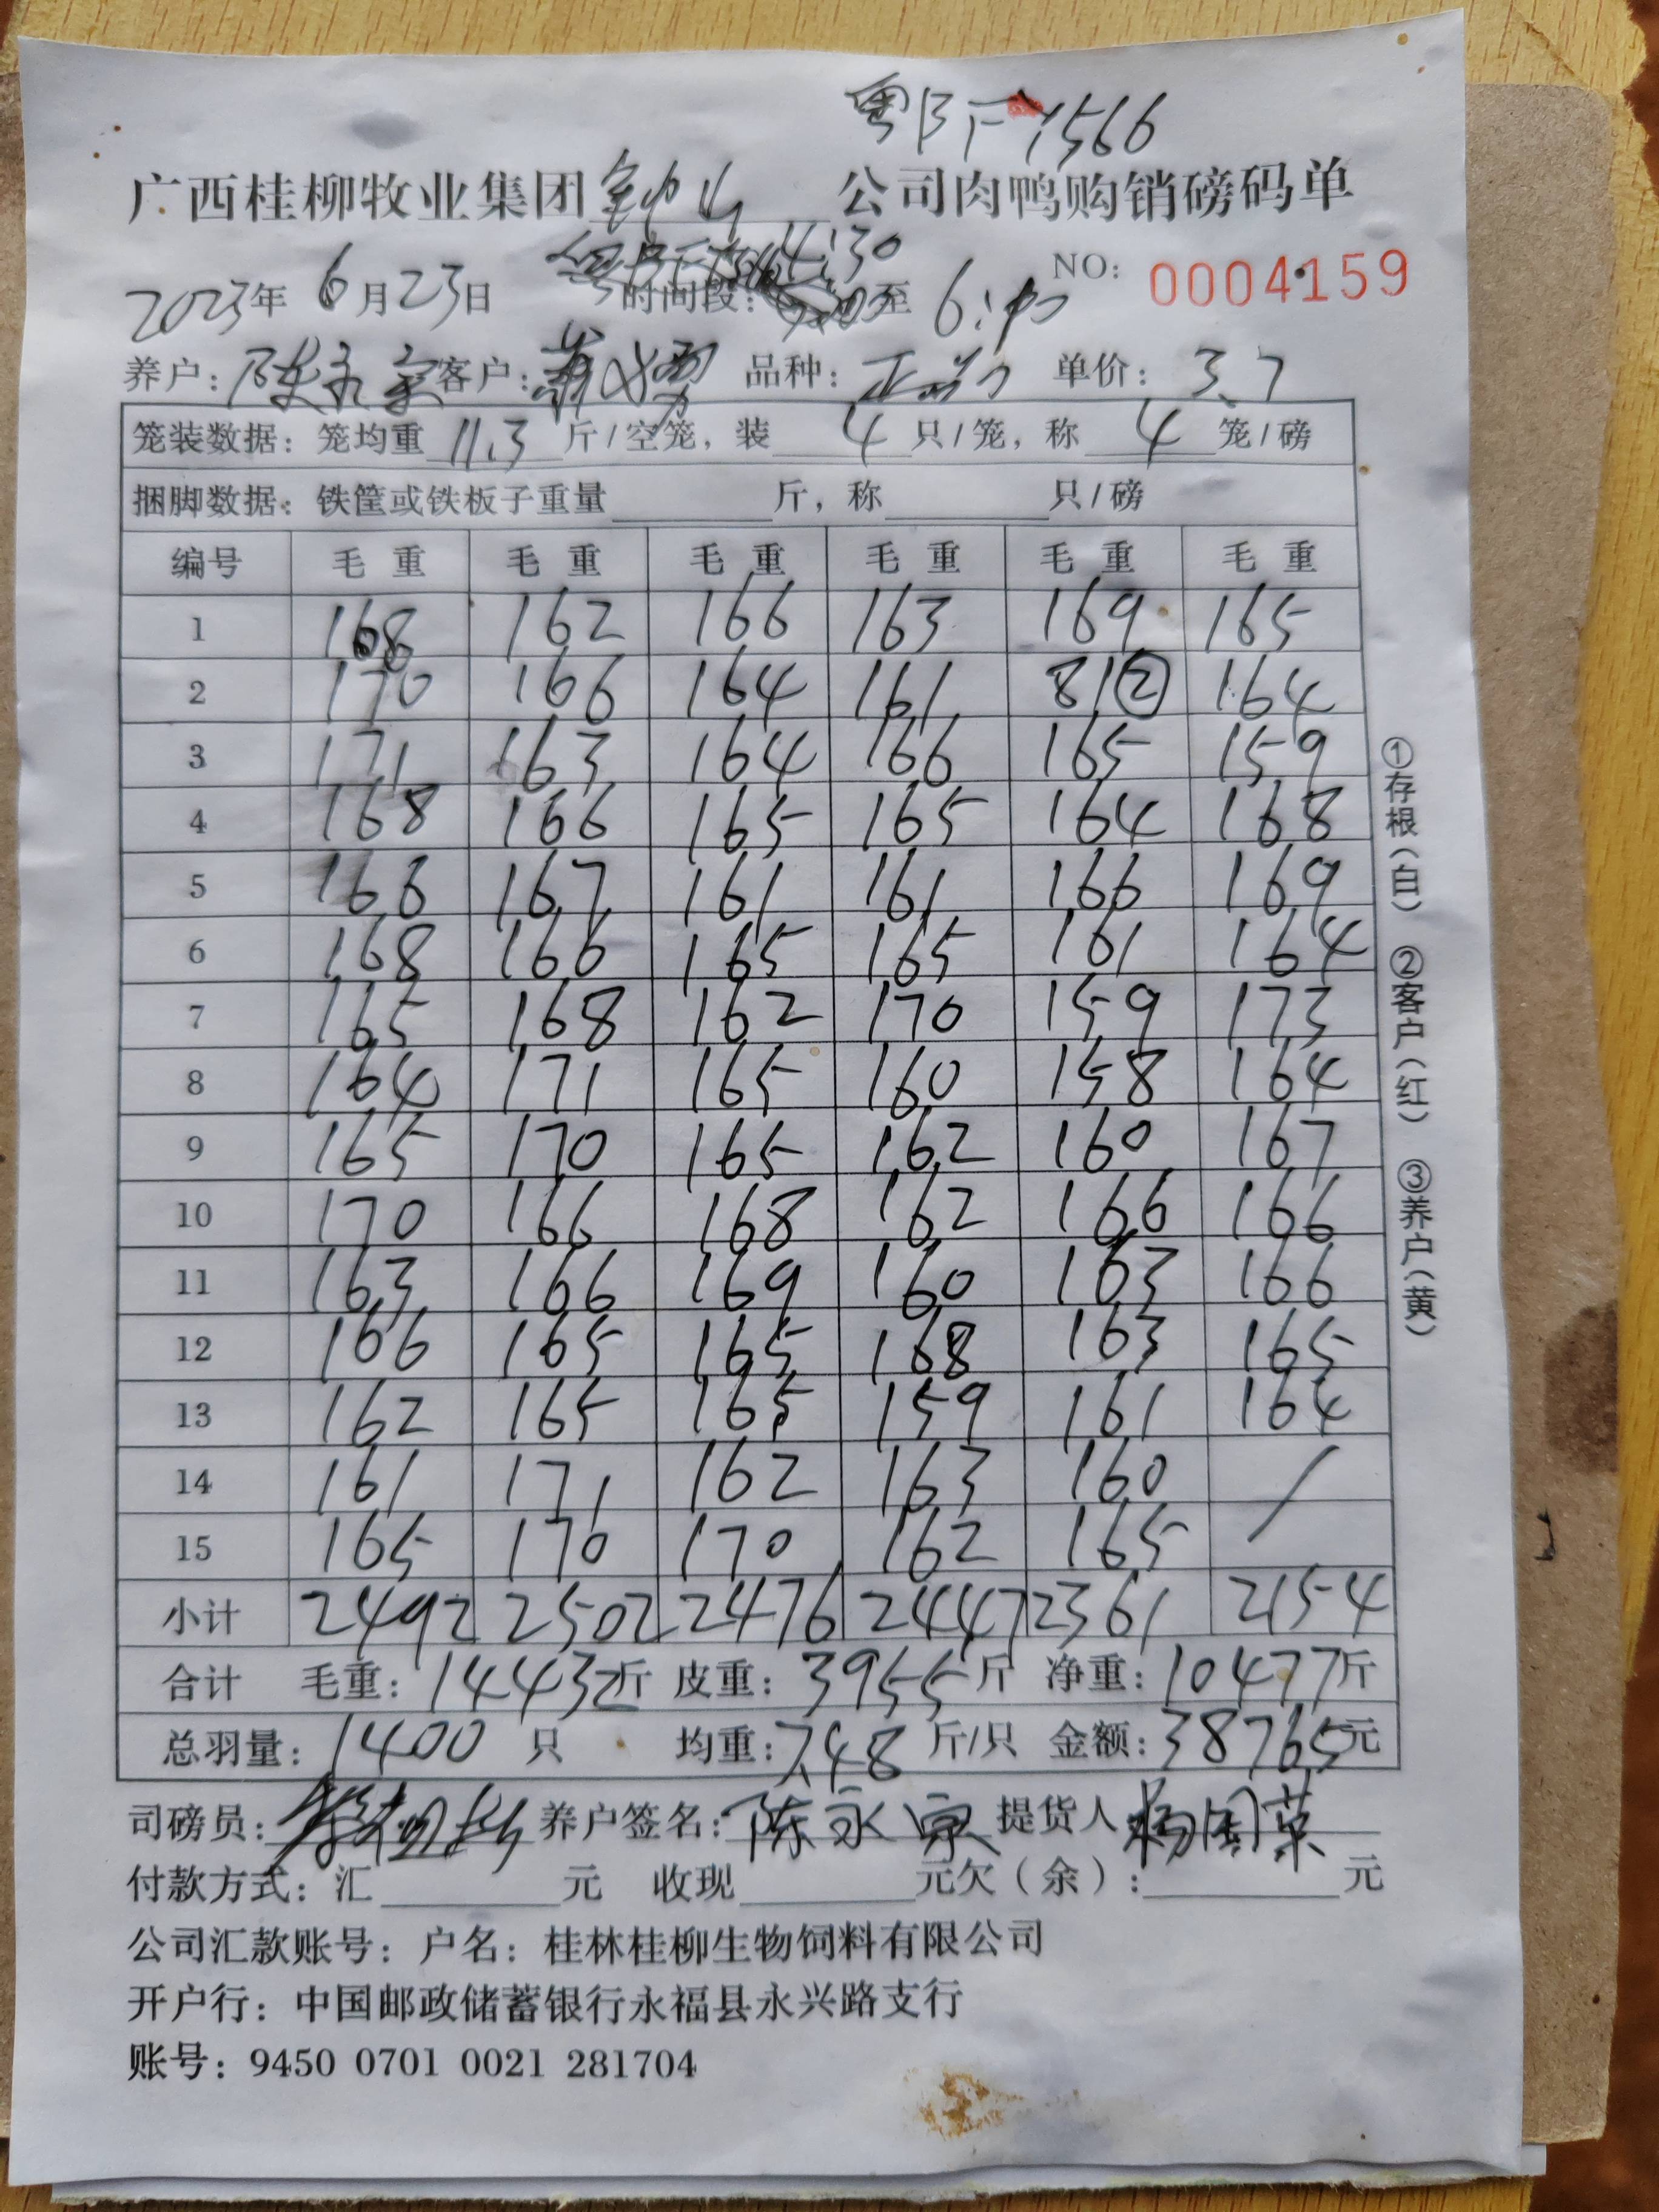 粤BF7566
广西桂柳牧业集团 钟山 公司肉鸭购销磅码单
2023年 6月23日 时间段: 4:30 至 6:40 NO: 0004159
养户: 陈永宗 客户: 勇 品种: 单价: 3.7
笼装数据: 笼均重 11.3 斤/空笼, 装 4 只/笼, 称 4 笼/磅
捆脚数据: 铁筐或铁板子重量 斤, 称 只/磅
编号 毛重 毛重 毛重 毛重 毛重 毛重
1 168 162 166 163 169 165
2 170 166 164 161 81② 164
3 171 163 164 166 165 159
4 168 166 165 165 164 168
5 166 167 161 161 166 169
6 168 166 165 165 161 164
7 165 168 162 170 159 173
8 164 171 165 160 158 164
9 165 170 165 162 160 167
10 170 166 168 162 166 166
11 163 166 169 160 163 166
12 166 165 165 168 163 165
13 162 165 165 159 161 164
14 161 171 162 163 160 /
15 165 170 170 162 165
小计 2492 2502 2476 2447 2361 2154
合计 毛重: 14432斤 皮重: 3955斤 净重: 10477斤
总羽量: 1400 只 均重: 7.48 斤/只 金额: 38765元
司磅员: 养户签名: 陈永宗 提货人 杨国荣
付款方式: 汇 元 收现 元欠(余): 元
公司汇款账号: 户名: 桂林桂柳生物饲料有限公司
开户行: 中国邮政储蓄银行永福县永兴路支行
账号: 9450 0701 0021 281704
①存根(白) ②客户(红) ③养户(黄)